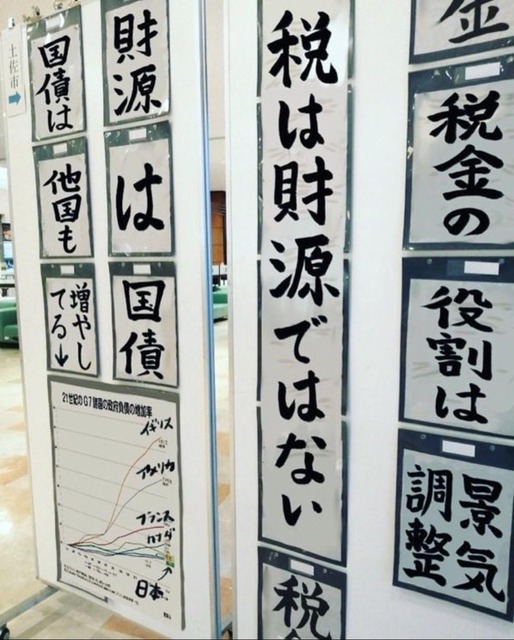 土佐市
→
財源
は
国債
国債は
他国も
増やし
てる↓
21世紀のG7諸国の政府負債の増加率
イギリス
アメリカ
フランス
カナダ
日本
税は財源ではない
税
金
税金の
役割は
景気
調整